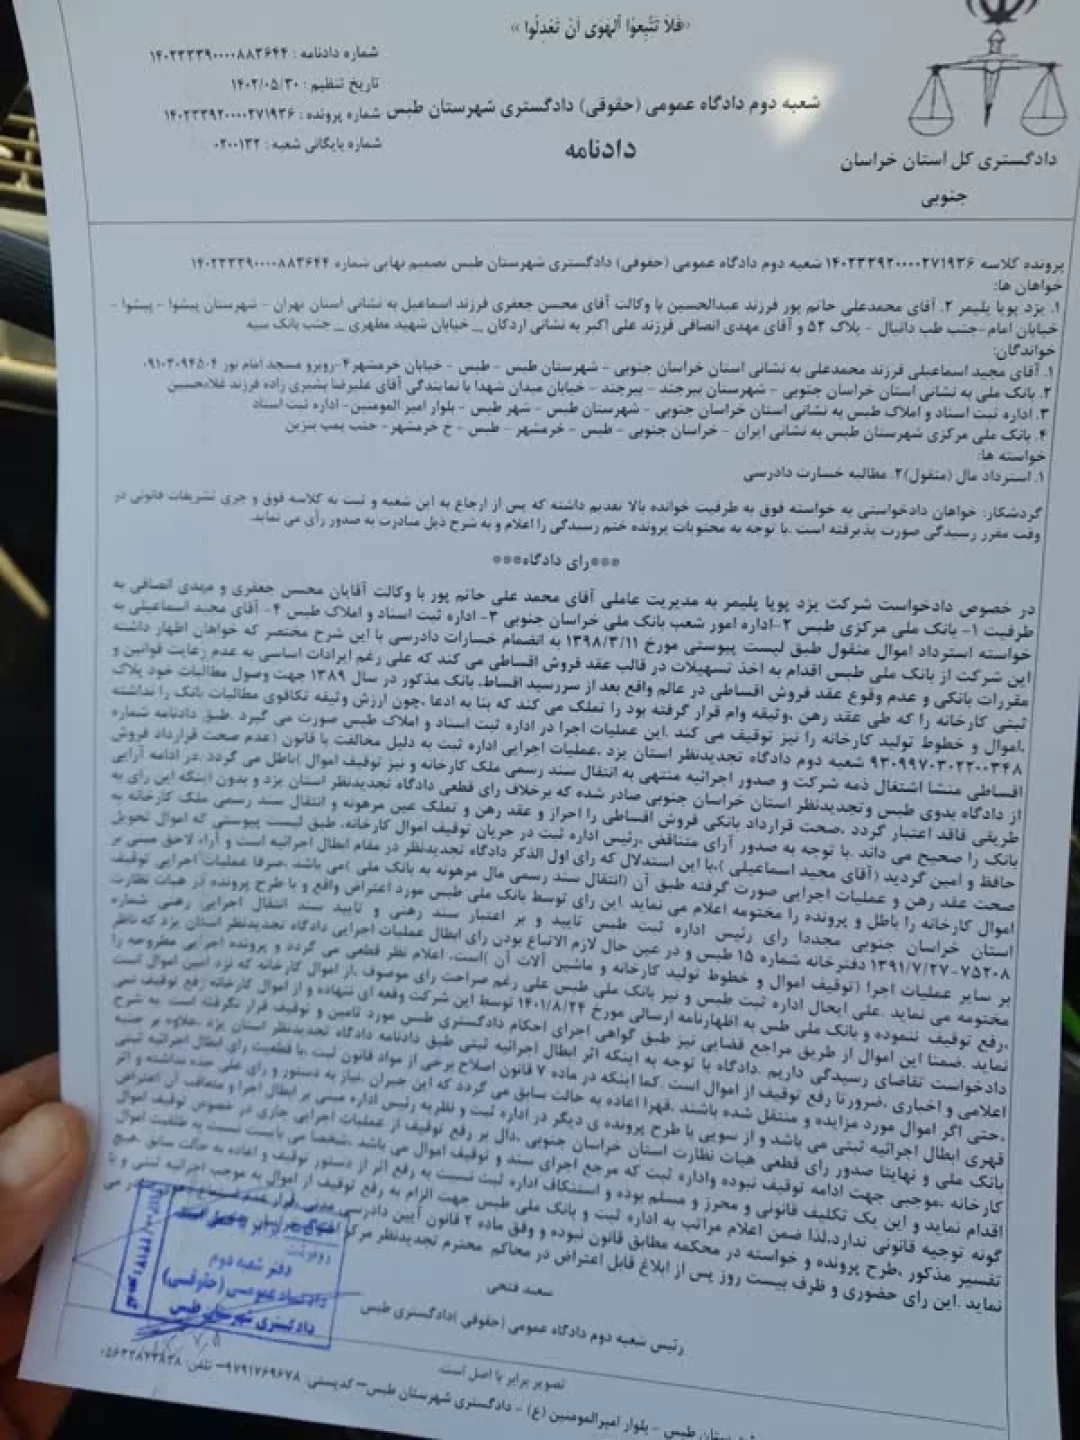 «فَلاَ تَتَّبِعوُا اَلهَوَى اَنْ تَعْدِلُوا »
شماره دادنامه : ۱۴۰۲۳۳۳۹۰۰۰۰۸۸۳۶۴۴
تاریخ تنظیم : ۱۴۰۲/۰۵/۳۰
شعبه دوم دادگاه عمومی (حقوقی) دادگستری شهرستان طبس شماره پرونده : ۱۴۰۲۳۳۹۲۰۰۰۰۲۷۱۹۳۶
شماره بایگانی شعبه : ۰۲۰۰۱۳۲
دادنامه
دادگستری کل استان خراسان
جنوبی
پرونده کلاسه ۱۴۰۲۳۳۹۲۰۰۰۰۲۷۱۹۳۶ شعبه دوم دادگاه عمومی (حقوقی) دادگستری شهرستان طبس تصمیم نهایی شماره ۱۴۰۲۳۳۳۹۰۰۰۰۸۸۳۶۴۴
خواهان ها:
۱. یزد پویا پلیمر ۲. آقای محمدعلی حاتم پور فرزند عبدالحسین با وکالت آقای محسن جعفری فرزند اسماعیل به نشانی استان تهران - شهرستان پیشوا - پیشوا -
خیابان امام-جنب طب دانیال - پلاک ۵۲ و آقای مهدی انصافی فرزند علی اکبر به نشانی اردکان _ خیابان شهید مطهری _ جنب بانک سپه
خواندگان:
۱. آقای مجید اسماعیلی فرزند محمدعلی به نشانی استان خراسان جنوبی - شهرستان طبس - طبس - خیابان خرمشهر۴-روبرو مسجد امام نور ۰۹۱۰۳۰۹۴۵۰۴
۲. بانک ملی به نشانی استان خراسان جنوبی - شهرستان بیرجند - بیرجند - خیابان میدان شهدا با نمایندگی آقای علیرضا بشیری زاده فرزند غلامحسین
۳. اداره ثبت اسناد و املاک طبس به نشانی استان خراسان جنوبی - شهرستان طبس - شهر طبس - بلوار امیر المومنین- اداره ثبت اسناد
۴. بانک ملی مرکزی شهرستان طبس به نشانی ایران - خراسان جنوبی - طبس - خرمشهر - طبس - خ خرمشهر- جنب پمپ بنزین
خواسته ها:
۱. استرداد مال (منقول)۲. مطالبه خسارت دادرسی
گردشکار: خواهان دادخواستی به خواسته فوق به طرفیت خوانده بالا تقدیم داشته که پس از ارجاع به این شعبه و ثبت به کلاسه فوق و جری تشریفات قانونی در
وقت مقرر رسیدگی صورت پذیرفته است .با توجه به محتویات پرونده ختم رسیدگی را اعلام و به شرح ذیل مبادرت به صدور رأی می نماید.
***رای دادگاه***
در خصوص دادخواست شرکت یزد پویا پلیمر به مدیریت عاملی آقای محمد علی حاتم پور با وکالت آقایان محسن جعفری و مهدی انصافی به
طرفیت ۱- بانک ملی مرکزی طبس ۲-اداره امور شعب بانک ملی خراسان جنوبی ۳- اداره ثبت اسناد و املاک طبس ۴- آقای مجید اسماعیلی به
خواسته استرداد اموال منقول طبق لیست پیوستی مورخ ۱۳۹۸/۳/۱۱ به انضمام خسارات دادرسی با این شرح مختصر که خواهان اظهار داشته
این شرکت از بانک ملی طبس اقدام به اخذ تسهیلات در قالب عقد فروش اقساطی می کند که علی رغم ایرادات اساسی به عدم رعایت قوانین و
مقررات بانکی و عدم وقوع عقد فروش اقساطی در عالم واقع بعد از سررسید اقساط، بانک مذکور در سال ۱۳۸۹ جهت وصول مطالبات خود پلاک
ثبتی کارخانه را که طی عقد رهن ،وثیقه وام قرار گرفته بود را تملک می کند که بنا به ادعا ،چون ارزش وثیقه تکافوی مطالبات بانک را نداشته
،اموال و خطوط تولید کارخانه را نیز توقیف می کند .این عملیات اجرا در اداره ثبت اسناد و املاک طبس صورت می گیرد .طبق دادنامه شماره
۹۳۰۹۹۷۰۳۰۲۲۰۰۳۴۸ شعبه دوم دادگاه تجدیدنظر استان یزد ،عملیات اجرایی اداره ثبت به دلیل مخالفت با قانون (عدم صحت قرارداد فروش
اقساطی منشا اشتغال ذمه شرکت و صدور اجرائیه منتهی به انتقال سند رسمی ملک کارخانه و نیز توقیف اموال )باطل می گردد .در ادامه آرایی
از دادگاه بدوی طبس وتجدیدنظر استان خراسان جنوبی صادر شده که برخلاف رای قطعی دادگاه تجدیدنظر استان یزد و بدون اینکه این رای به
طریقی فاقد اعتبار گردد ،صحت قرارداد بانکی فروش اقساطی را احراز و عقد رهن و تملک عین مرهونه و انتقال سند رسمی ملک کارخانه به
بانک را صحیح می داند .با توجه به صدور آرای متناقض ،رئیس اداره ثبت در جریان توقیف اموال کارخانه، طبق لیست پیوستی که اموال تحویل
حافظ و امین گردید (آقای مجید اسماعیلی )،با این استدلال که رای اول الذکر دادگاه تجدیدنظر در مقام ابطال اجرائیه است و آراء لاحق مبنی بر
صحت عقد رهن و عملیات اجرایی صورت گرفته طبق آن (انتقال سند رسمی مال مرهونه به بانک ملی )می باشد ،صرفا عملیات اجرایی توقیف
اموال کارخانه را باطل و پرونده را مختومه اعلام می نماید .این رای توسط بانک ملی طبس مورد اعتراض واقع و با طرح پرونده در هیات نظارت
استان خراسان جنوبی مجددا رای رئیس اداره ثبت طبس تایید و بر اعتبار سند رهنی و تایید سند انتقال اجرایی رهنی شماره
۷۵۲۰۸-۱۳۹۱/۷/۲۷ دفترخانه شماره ۱۵ طبس و در عین حال لازم الاتباع بودن رای ابطال عملیات اجرایی دادگاه تجدیدنظر استان یزد که ناظر
بر سایر عملیات اجرا (توقیف اموال و خطوط تولید کارخانه و ماشین آلات آن )است، اعلام نظر قطعی می گردد و پرونده اجرایی مطروحه را
مختومه می نماید .علی ایحال اداره ثبت طبس و نیز بانک ملی طبس علی رغم صراحت رای موصوف ،از اموال کارخانه که نزد امین اموال است
،رفع توقیف ننموده و بانک ملی طبس به اظهارنامه ارسالی مورخ ۱۴۰۱/۸/۲۴ توسط این شرکت وقعه ای ننهاده و از اموال کارخانه رفع توقیف نمی
نماید .ضمنا این اموال از طریق مراجع قضایی نیز طبق گواهی اجرای احکام دادگستری طبس مورد تامین و توقیف قرار نگرفته است .به شرح
دادخواست تقاضای رسیدگی داریم .دادگاه با توجه به اینکه اثر ابطال اجرائیه ثبتی طبق دادنامه دادگاه تجدیدنظر استان یزد ،علاوه بر جنبه
اعلامی و اخباری ،ضرورتا رفع توقیف از اموال است .کما اینکه در ماده ۷ قانون اصلاح برخی از مواد قانون ثبت ،با قطعیت رای ابطال اجرائیه ثبتی
،حتی اگر اموال مورد مزایده و منتقل شده باشند ،قهرا اعاده به حالت سابق می گردد که این جبران ،نیاز به دستور و رای علی حده نداشته و اثر
قهری ابطال اجرائیه ثبتی می باشد و از سویی با طرح پرونده ی دیگر در اداره ثبت و نظریه رئیس اداره مبنی بر ابطال اجرا و متعاقب آن اعتراض
بانک ملی و نهایتا صدور رای قطعی هیات نظارت استان خراسان جنوبی ،دال بر رفع توقیف از عملیات اجرایی جاری در خصوص توقیف اموال
کارخانه ،موجبی جهت ادامه توقیف نبوده واداره ثبت که مرجع اجرای سند و توقیف اموال می باشد ،شخصا می بایست نسبت به
اقدام نماید و این یک تکلیف قانونی و محرز و مسلم بوده و استنکاف اداره ثبت نسبت به رفع اثر از دستور توقیف و اعاده به حالت سابق ،هیچ
گونه توجیه قانونی ندارد،لذا ضمن اعلام مراتب به اداره ثبت و بانک ملی طبس جهت الزام به رفع توقیف از اموال به موجب اجرائیه ثبتی و با
تفسیر مذکور ،طرح پرونده و خواسته در محکمه مطابق قانون نبوده و وفق ماده ۲ قانون آیین دادرسی مدنی قرار عدم استماع می
نماید .این رای حضوری و ظرف بیست روز پس از ابلاغ قابل اعتراض در محاکم محترم تجدیدنظر مرکز استان
سعید فتحی
رئیس شعبه دوم دادگاه عمومی (حقوقی )دادگستری طبس
رونوشت
دفتر شعبه دوم
دادگاه عمومی (حقوقی)
دادگستری شهرستان طبس
تصویر برابر با اصل است
طبس - بلوار امیرالمومنین (ع) - دادگستری شهرستان طبس- کدپستی: ۹۷۹۱۷۶۹۶۷۸- تلفن: ۰۵۶۳۲۸۲۳۸۳۸